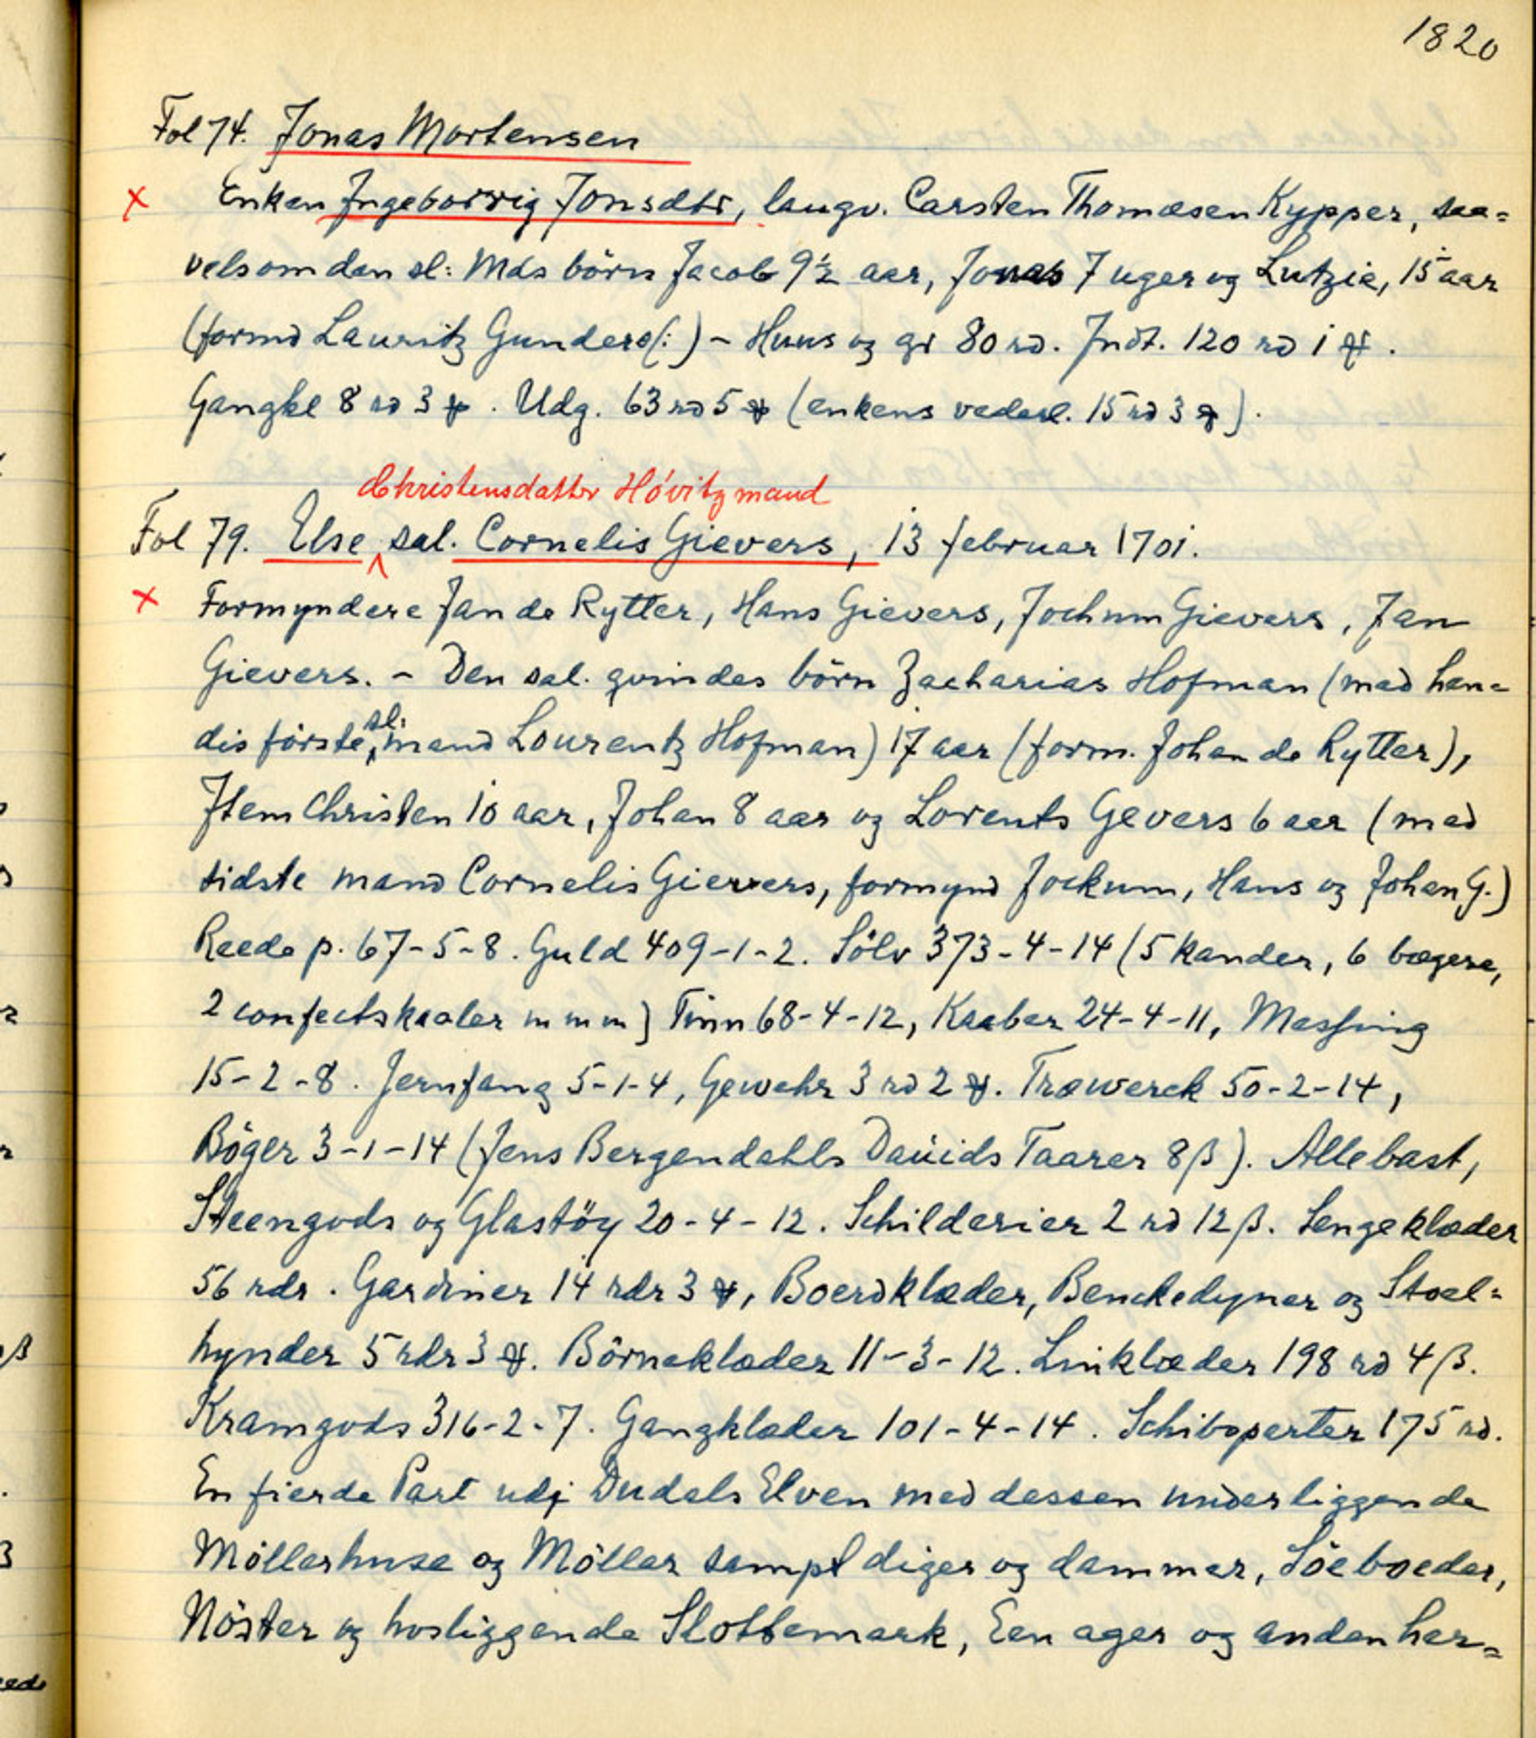 1820
Fol 74. Jonas Mortensen
x Enken Ingeborrig Jonsdtr, laugv. Carsten Thomæsen Kypper, saa=
velsom den sl: Mds börn Jacob 9½ aar, Jonas 7 uger og Lutzie, 15 aar
(formd Lauritz Gunders(:) – Huus og gr 80 rd. Indt. 120 rd 1 ⴕ.
Gangkl 8 rd 3 ⴕ. Udg. 63 rd 5 ⴕ (enkens vederl. 15 rd 3 ⴕ).
Christensdatter Hövitzmand
Fol 79. Else sal. Cornelis Gievers, 13 februar 1701.
x Formyndere Jan de Rytter, Hans Gievers, Jochum Gievers, Jan
Gievers. – Den sal. qvindes börn Zacharias Hofman (med hen=
dis förste sl: mand Lourentz Hofman) 17 aar (form. Johan de Rytter),
Item Christen 10 aar, Johan 8 aar og Lorents Gevers 6 aar (med
sidste mand Cornelis Gievers, formynd Jockum, Hans og Johan G.)
Reede p. 67-5-8. Guld 409-1-2. Sölv 373-4-14 (5 kander, 6 bægere,
2 confectskaaler m m m) Tinn 68-4-12, Kaaber 24-4-11, Messing
15-2-8. Jernfang 5-1-4, Gewehr 3 rd 2 ⴕ. Træwerck 50-2-14,
Böger 3-1-14 (Jens Bergendahls Dauids Taarer 8 β). Allebast,
Steengods og Glastöy 20-4-12. Schilderier 2 rd 12 β. Sengeklæder
56 rdr. Gardiner 14 rdr 3 ⴕ, Boerdklæder, Benckedyner og Stoel=
hynder 5 rdr 3 ⴕ. Börneklæder 11-3-12. Linklæder 198 rd 4 β.
Kramgods 316-2-7. Gangklæder 101-4-14. Schibsparter 175 rd.
En fierde Part udj Dudals Elven med dessen underliggende
Möllerhuse og Möller sampt diger og dammer, Söeboeder,
Nöster og hosliggende Slottemark, Een ager og anden her=